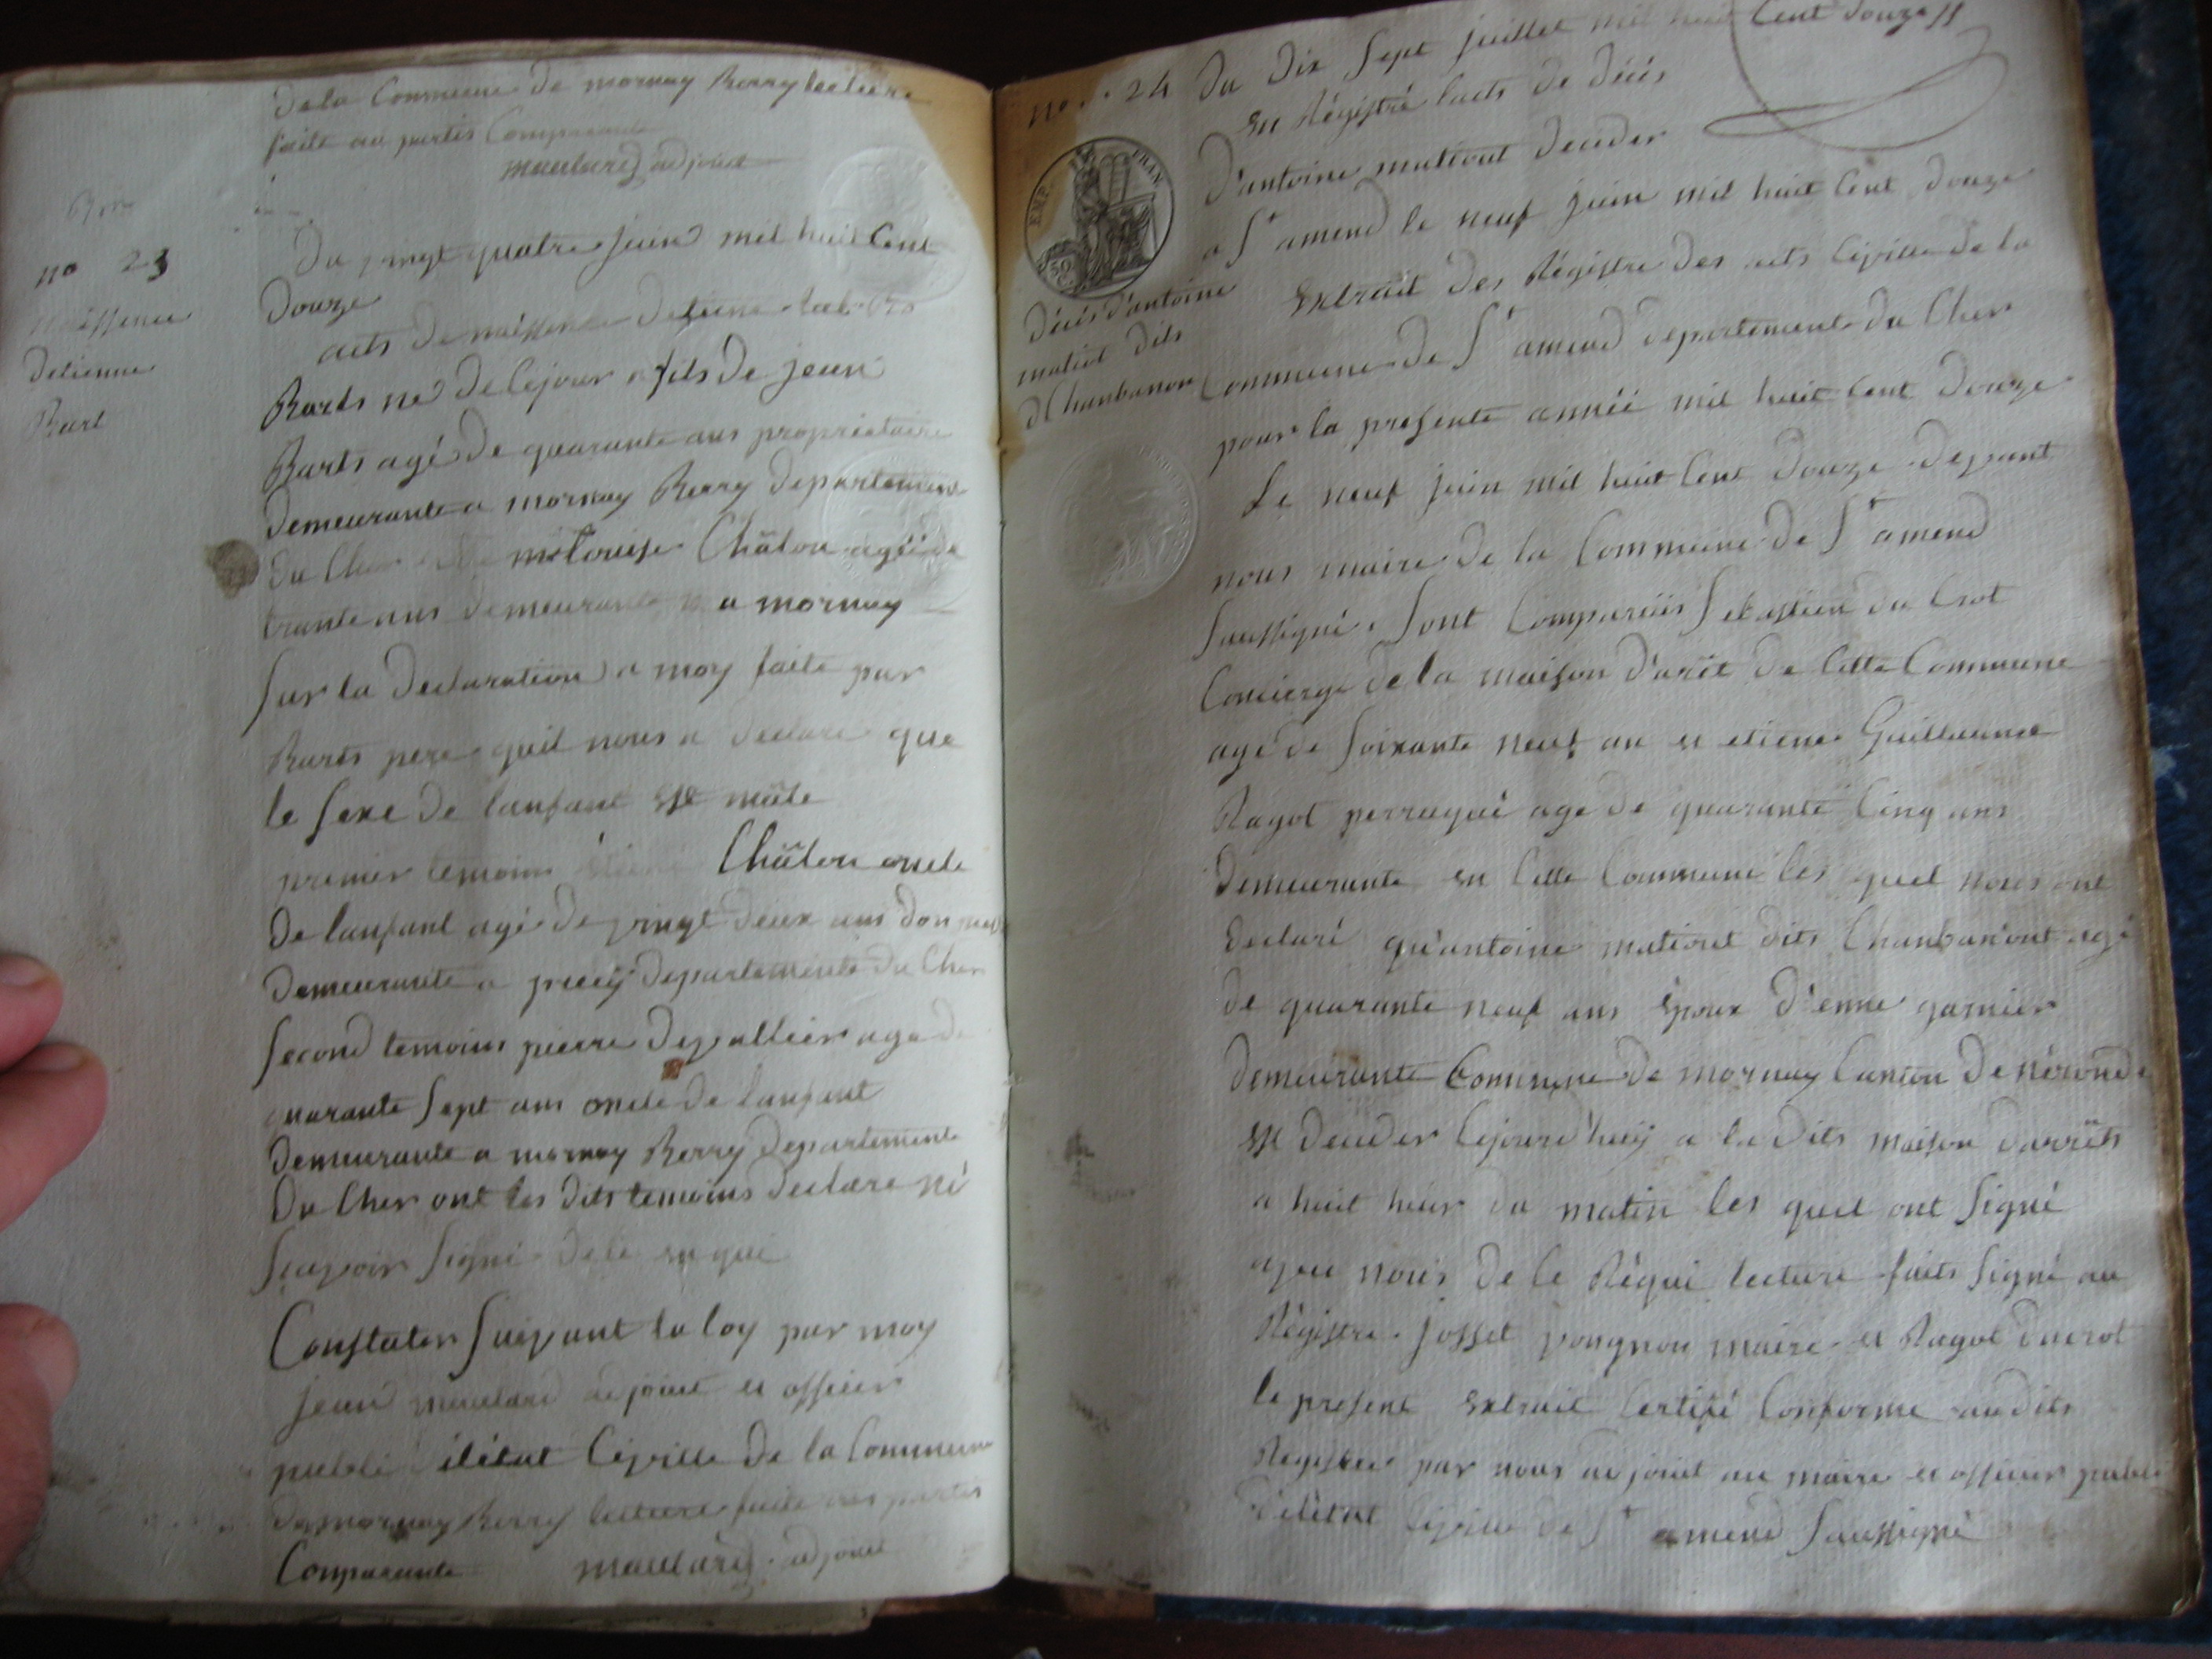 de la Commune de mornay Berry lecture
faite au partis Comparante
maulard adjoint
no 23
naissence
detienne
Bart
Du vingt quatre juin mil huit Cent
douze
acts de naissence detiene
Barts né de Cejour fils de jean
Barts agé de quarante ans propriétaire
demeurante a mornay Berry departement
du Cher louise Châlon agée de
trante ans demeurante a mornay
sur la declaration a moy faite par
Barts pere quil nous a declare que
le sexe de lanfant est mâle
premier temoins Châlon oncle
de lanfant agé de vingt deux ans
demeurante a departements du Cher
second temoins pierre devallier age de
quarante sept ans oncle de lanfant
demeurante a mornay Berry departement
du Cher ont les dits temoins declare né
sçavoir signé de ce enqui
Constater suivant la loy par moy
jean maulard adjoint et officier
public détat Civille de la Commune
de mornay Berry lecture faite aux partis
Comparante maulard adjoint
no. 24 Du dix sept juillet mil huit Cent douze
En Régistré lacts de décés
d'antoine mutiout deceder
a St amend le neuf juin mil huit Cent douze
EMP. FRAN.
50 C.
décés d'antoine
mutiot dits
Chanbanon
Extrait des Régistre des acts Civille de la
Commune de St amend departement du Cher
pour la presente année mil huit Cent douze
Le neuf juin mil huit Cent douze devant
nous maire de la Commune de St amend
sont Comparüs sebastien du Crot
Concierge de la maison d'arêt de Cette Commune
agé de soixante neuf an et etiene Guillaume
Ragot perruqué age de quarante Cinq ans
demeurante en Cette Commune les quel nous ont
declaré qu'antoine mutiout dits Chanbanont agé
de quarante neuf ans Époux d'enne garnier
demeurante Commune de mornay Canton de néronde
est deceder Cejourd'huÿ a la dits maison d'arrêts
a huit heur du matin les quel ont signé
avec nous de Ce Réqui lecture faits signé au
Régistre josset vougnon maire et Ragot ducrot
le present Extrait Certifié Conforme au dits
Registre par nous adjoint au maire et officier public
d'létat Civille de St amend